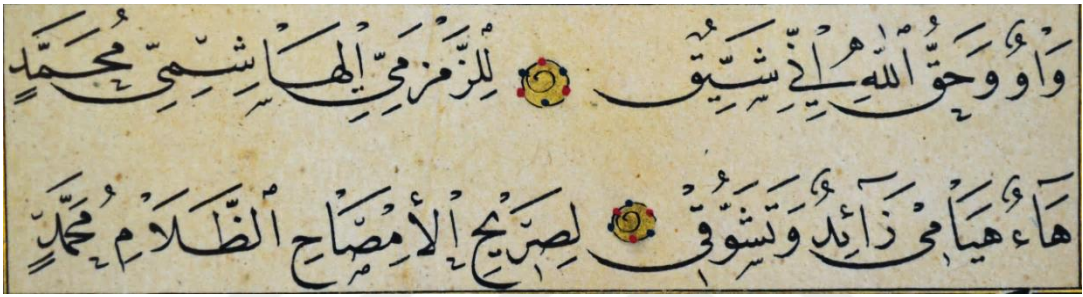 وَاوٌ وَحَقُّ ٱللهِ إِنِّي شَيِّقٌ لِلزَّمْزَمِيِّ الْهَاشِمِيِّ مُحَمَّدٍ
هَاءٌ هَيَامِي زَآئِدٌ وَتَشَوُّقِي لِصَرِيْحِ الْأمِصْبَاحِ ٱلظَّلَامِ مُحَمَّدٍ